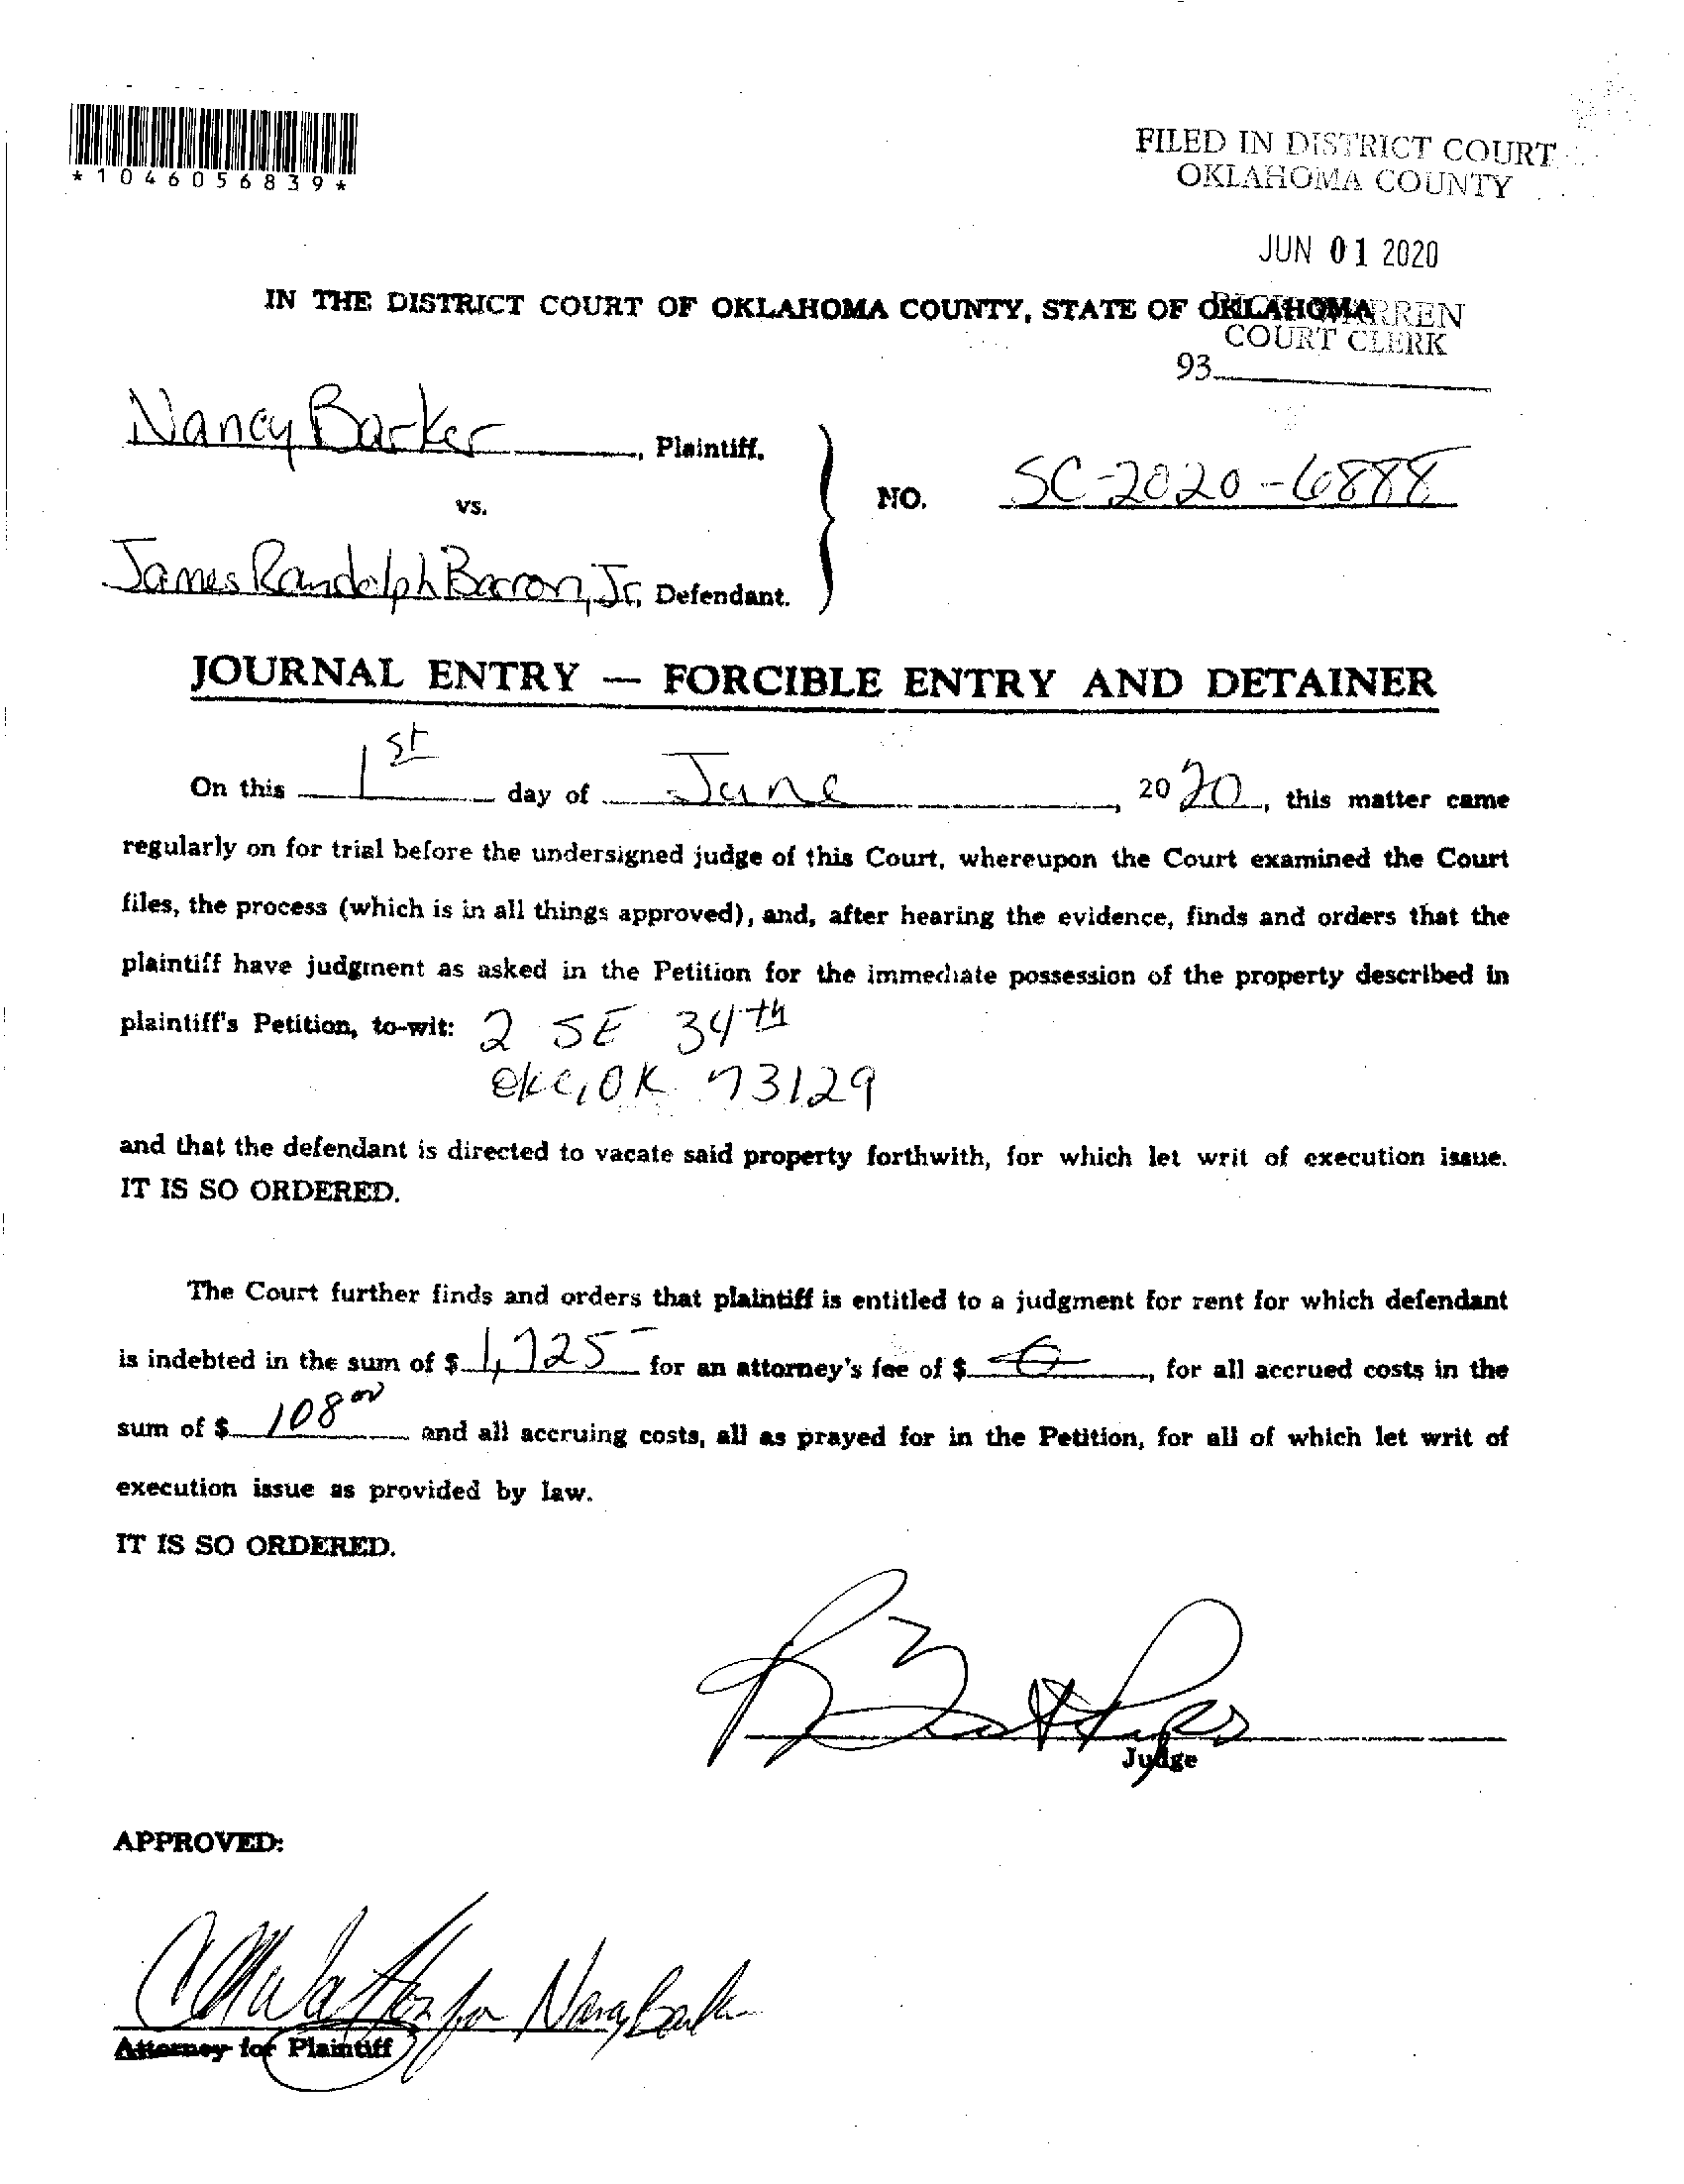 *1046056839*
FILED IN DISTRICT COURT
OKLAHOMA COUNTY
JUN 01 2020
IN THE DISTRICT COURT OF OKLAHOMA COUNTY, STATE OF OKLAHOMA
COURT CLERK
93
Nancy Barker, Plaintiff,
vs.
NO. SC-2020-6888
James Randolph Barron, Jr, Defendant.
JOURNAL ENTRY — FORCIBLE ENTRY AND DETAINER
On this 1st day of June, 2020, this matter came
regularly on for trial before the undersigned judge of this Court, whereupon the Court examined the Court
files, the process (which is in all things approved), and, after hearing the evidence, finds and orders that the
plaintiff have judgment as asked in the Petition for the immediate possession of the property described in
plaintiff's Petition, to-wit: 2 SE 34th
OKC, OK 73129
and that the defendant is directed to vacate said property forthwith, for which let writ of execution issue.
IT IS SO ORDERED.
The Court further finds and orders that plaintiff is entitled to a judgment for rent for which defendant
is indebted in the sum of $ 1,725- for an attorney's fee of $ 0, for all accrued costs in the
sum of $ 108 00 and all accruing costs, all as prayed for in the Petition, for all of which let writ of
execution issue as provided by law.
IT IS SO ORDERED.
Judge
APPROVED:
for Nancy Barker
Attorney for Plaintiff